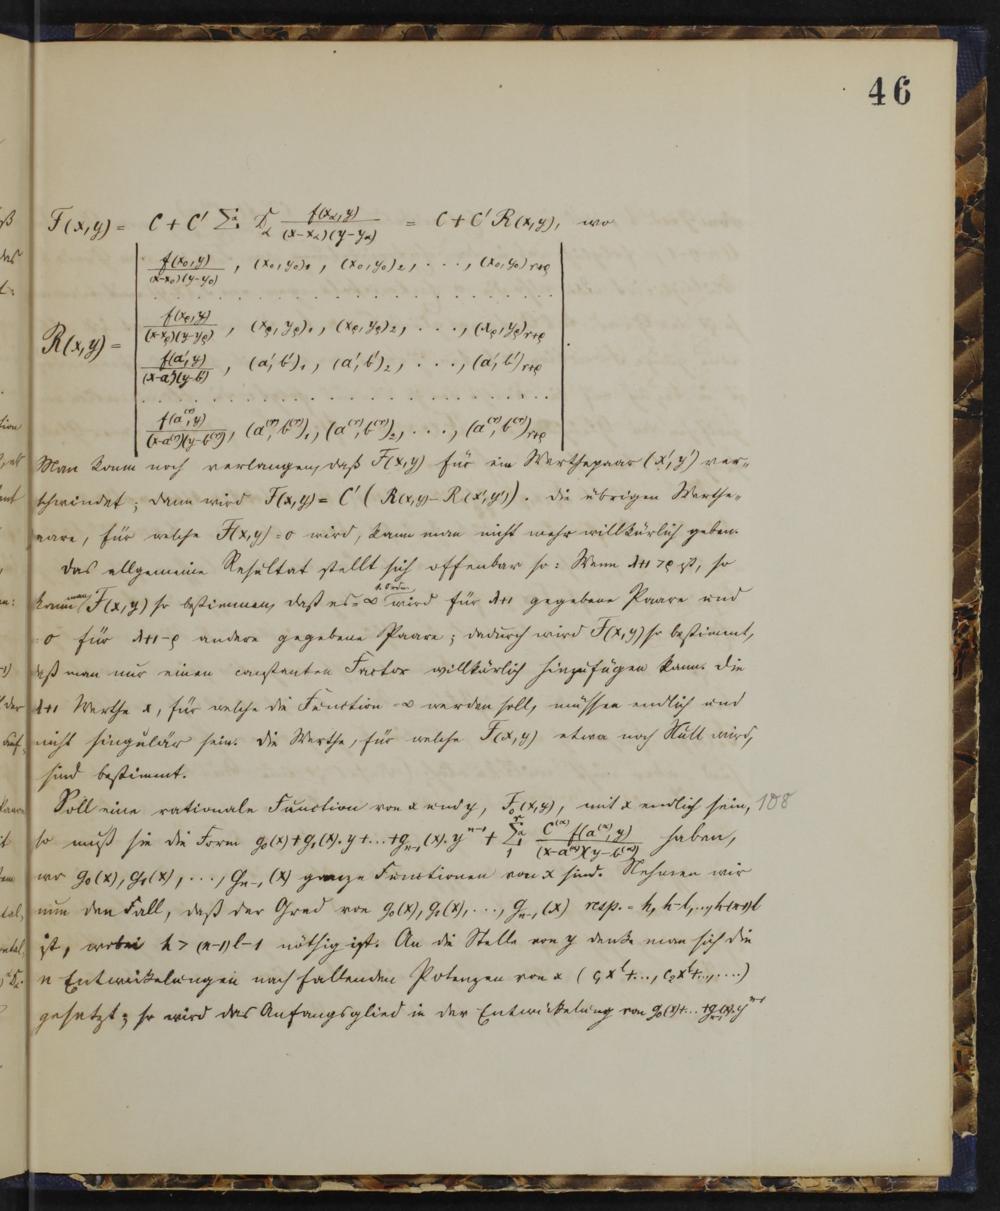 46
F(x,y) = C + C' Σ D_α f(x_α,y)/((x-x_α)(y-y_α)) = C + C' R(x,y), wo
f(x_0,y)/((x-x_0)(y-y_0)), (x_0,y_0)_1, (x_0,y_0)_2, . . ., (x_0,y_0)_{r+ρ}
. . . . . . . . . . . . . . . . . . . .
f(x_ρ,y)/((x-x_ρ)(y-y_ρ)), (x_ρ,y_ρ)_1, (x_ρ,y_ρ)_2, . . ., (x_ρ,y_ρ)_{r+ρ}
R(x,y) =
f(a',y)/((x-a')(y-b')), (a',b')_1, (a',b')_2, . . ., (a',b')_{r+ρ}
. . . . . . . . . . . . . . . . . . . .
f(a^{(r)},y)/((x-a^{(r)})(y-b^{(r)})), (a^{(r)},b^{(r)})_1, (a^{(r)},b^{(r)})_2, . . ., (a^{(r)},b^{(r)})_{r+ρ}
Man kann noch verlangen, daß F(x,y) für ein Werthepaar (x',y') ver-
schwindet; dann wird F(x,y) = C' (R(x,y) - R(x',y')). Die übrigen Werthe-
paare, für welche F(x,y) = 0 wird, kann man nicht mehr willkürlich geben.
Das allgemeine Resultat stellt sich offenbar so: Wenn λ+1 > ρ ist, so
kann man F(x,y) so bestimmen, daß es = ∞ 1. Ordn. wird für λ+1 gegebene Paare und
= 0 für λ+1-ρ andere gegebene Paare; dadurch wird F(x,y) so bestimmt,
daß man nur einen constanten Factor willkürlich hinzufügen kann. Die
λ+1 Werthe x, für welche die Function ∞ werden soll, müssen endlich und
nicht singulär sein. Die Werthe, für welche F(x,y) etwa noch Null wird,
sind bestimmt.
Soll eine rationale Function von x und y, F_0(x,y), mit x endlich sein, 108
so muß sie die Form g_0(x)+g_1(x).y+...+g_{n-1}(x).y^{n-1} + Σ_1^r C^{(α)} f(a^{(α)},y)/((x-a^{(α)})(y-b^{(α)})) haben,
wo g_0(x), g_1(x), . . ., g_{n-1}(x) ganze Functionen von x sind. Nehmen wir
nun den Fall, daß der Grad von g_0(x), g_1(x), . . ., g_{n-1}(x) resp. = h, h-l, .., h-(n-1)l
ist, wobei h > (n-1)l-1 nöthig ist. An die Stelle von y denke man sich die
n Entwickelungen nach fallenden Potenzen von x (c_1x^l+..., c_2x^l+..., ...)
gesetzt; so wird das Anfangsglied in der Entwickelung von g_0(x)+...+g_{n-1}(x).y^{n-1}